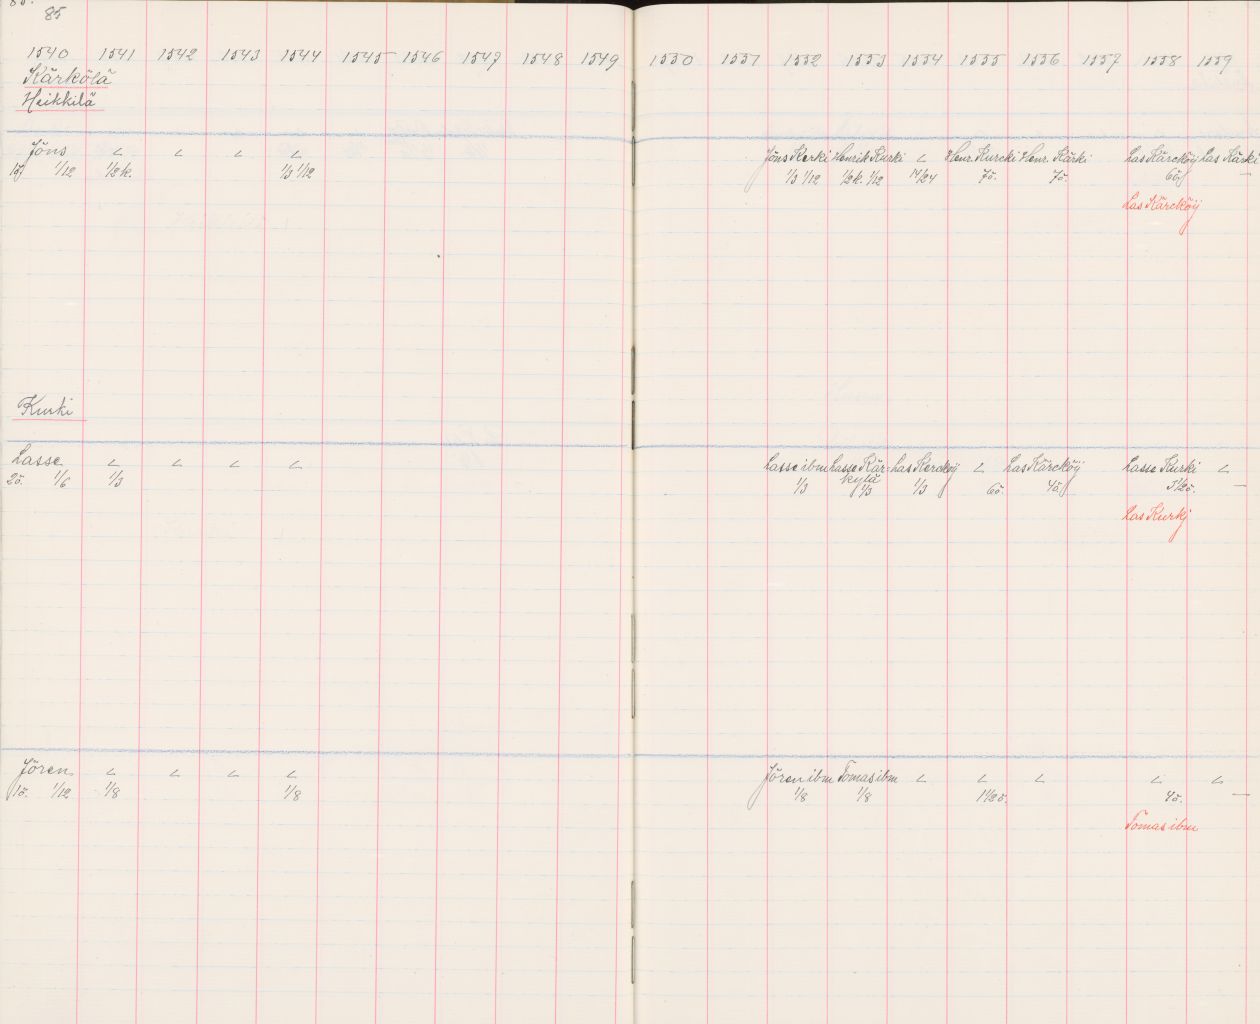 85
1540 1541 1542 1543 1544 1545 1546 1547 1548 1549 1550 1551 1552 1553 1554 1555 1556 1557 1558 1559
Kärkölä
Heikkilä
Jöns ∠ ∠ ∠ ∠ Jöns Kerki Henrik Kurki ∠ Henr. Kurcki Henr. Kärki Las Kärcköij Las Kärki
1/12 1/2 k. 1/3 1/12 1/3 1/12 1/2k. 1/12 14/24 7ö. 7ö. 6ö —
Las Kärcköij
Kurki
Lasse ∠ ∠ ∠ ∠ Lasse ibm Lasse Kär- Las Kerckoij ∠ Las Kärcköij Lasse Kurki ∠
kylä
2ö. 1/6 1/3 1/3 1/3 1/3 6ö. 4ö 5 1/2ö. —
Las Kurkj
Jören ∠ ∠ ∠ ∠ Jören ibm Tomas ibm ∠ ∠ ∠ ∠ ∠
1ö. 1/12 1/8 1/8 1/8 1/8 1 1/2ö. 4ö. —
Tomas ibm